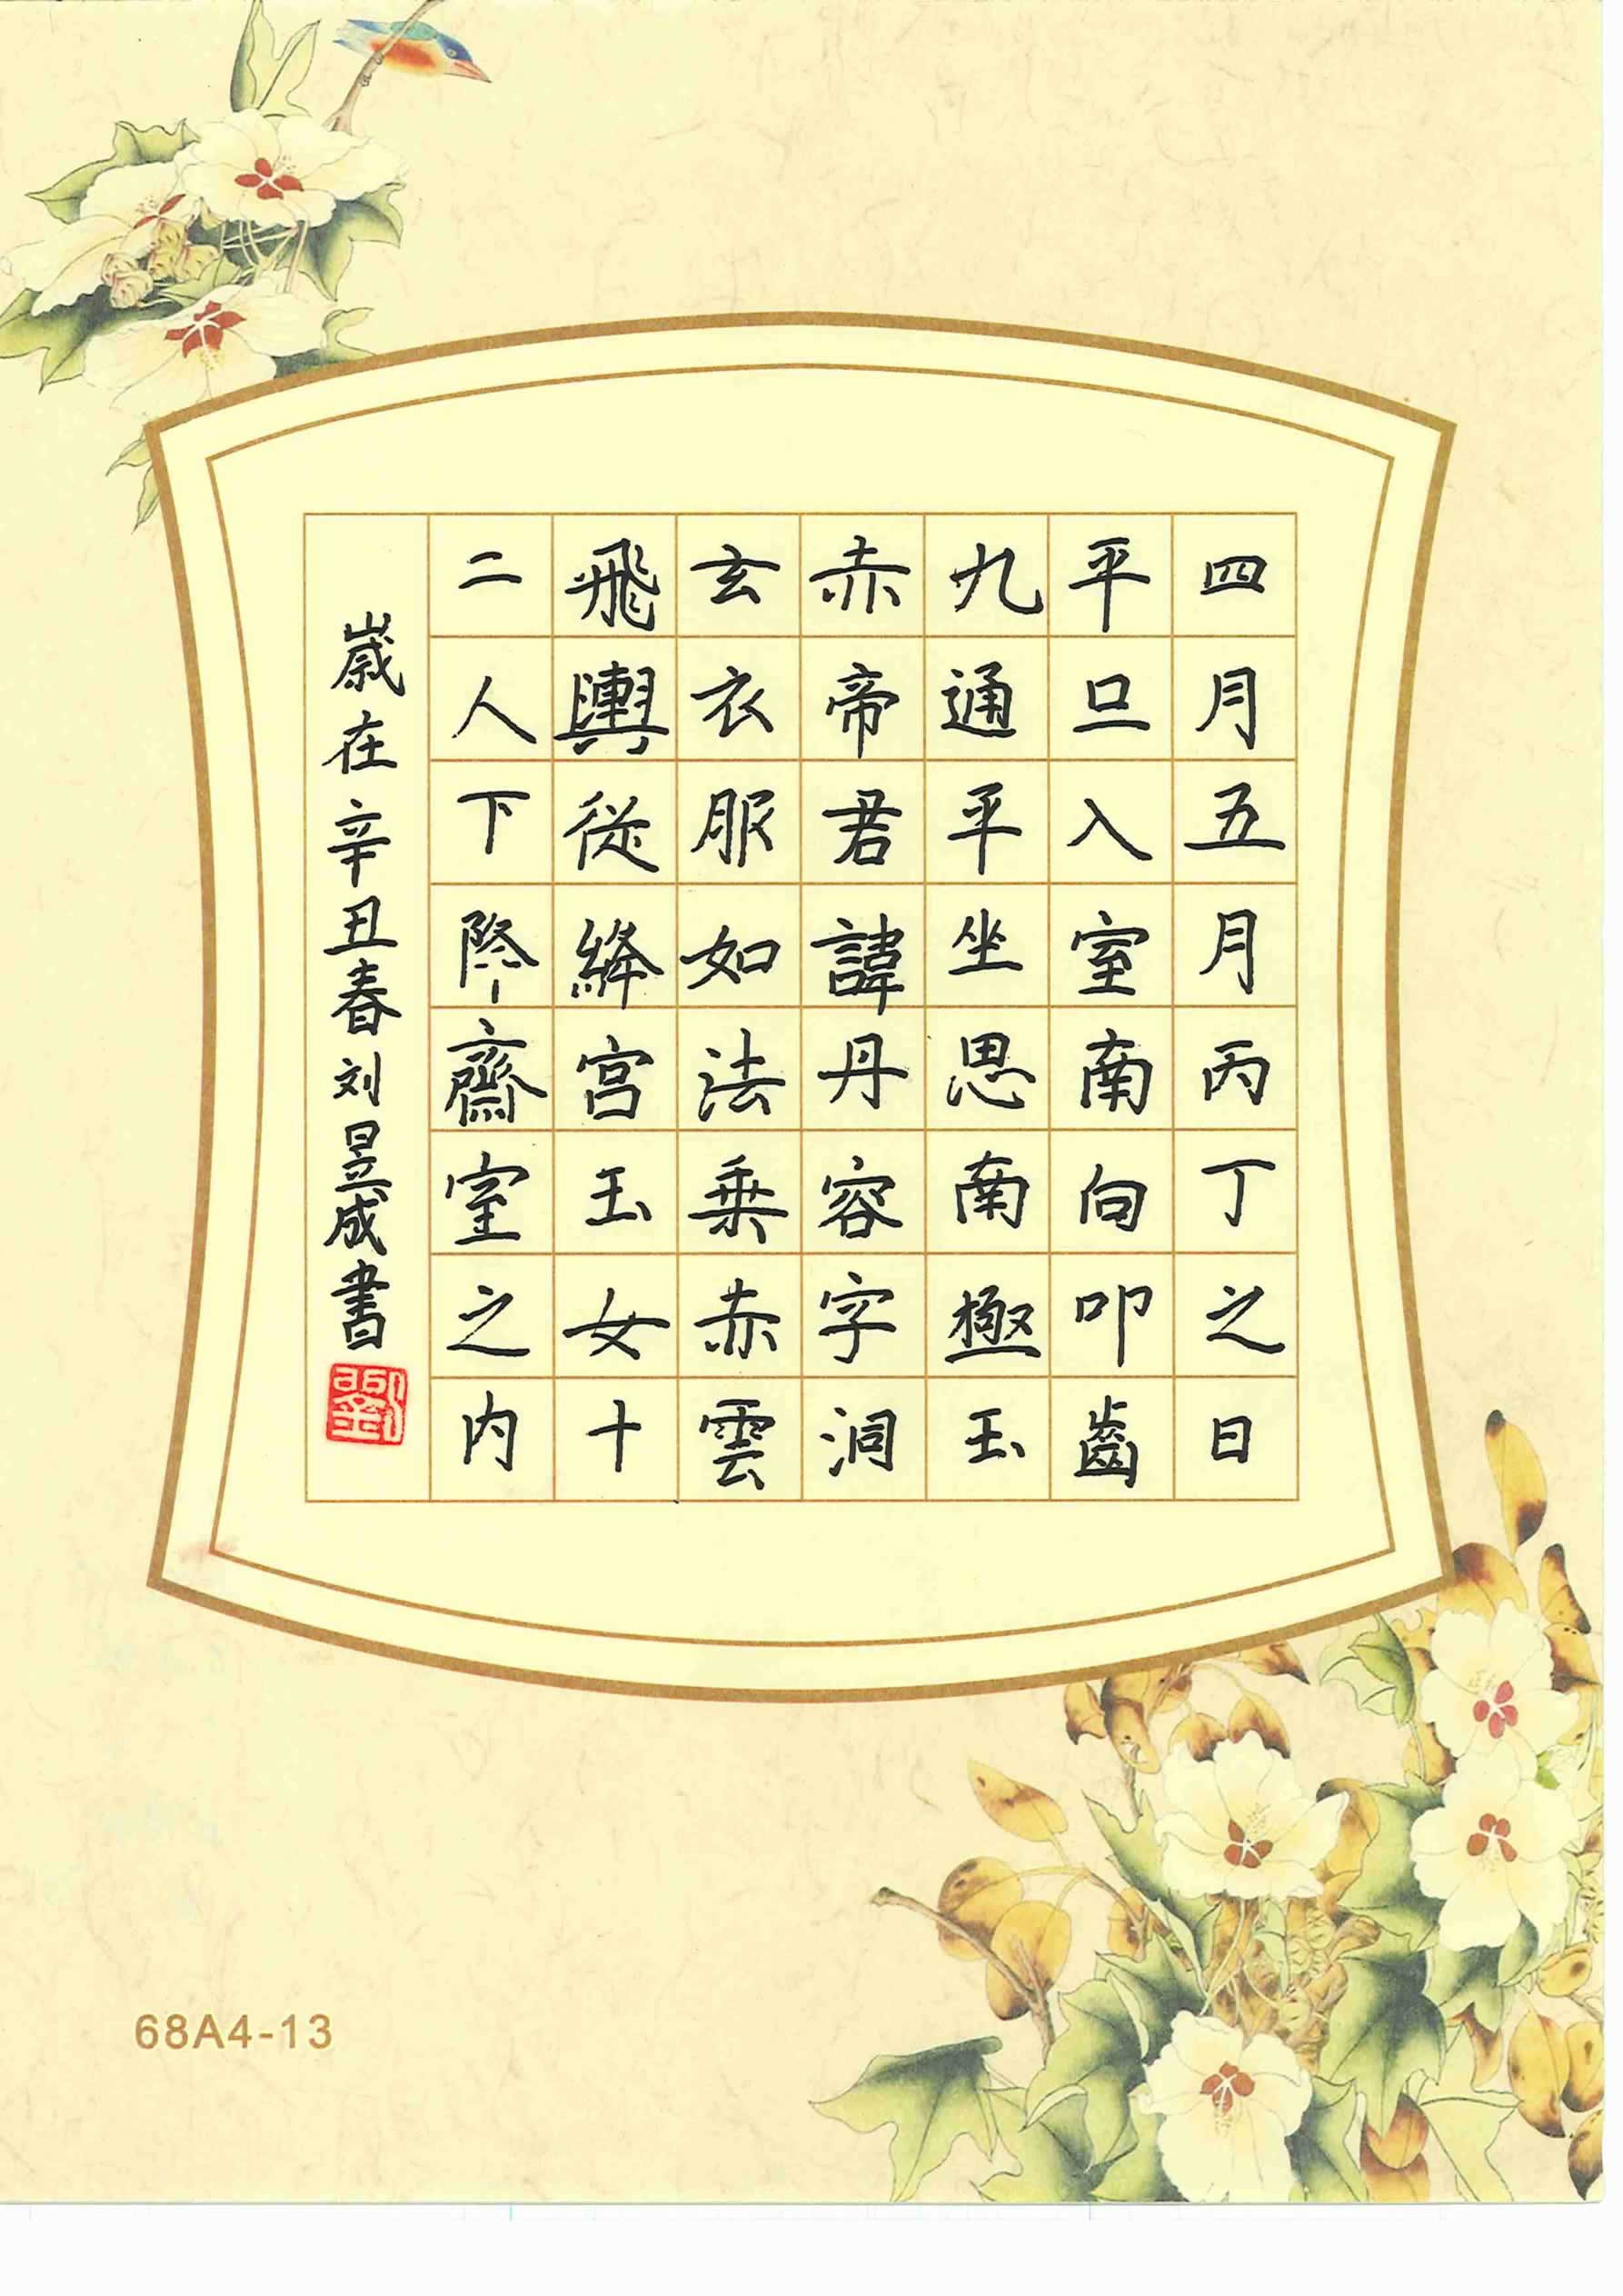 四月五月丙丁之日
平旦入室南向叩齒
九通平坐思南極玉
赤帝君諱丹容字洞
玄衣服如法乗赤雲
飛輿從絳宫玉女十
二人下降齋室之内
歲在辛丑春刘昱成書
劉
68A4-13